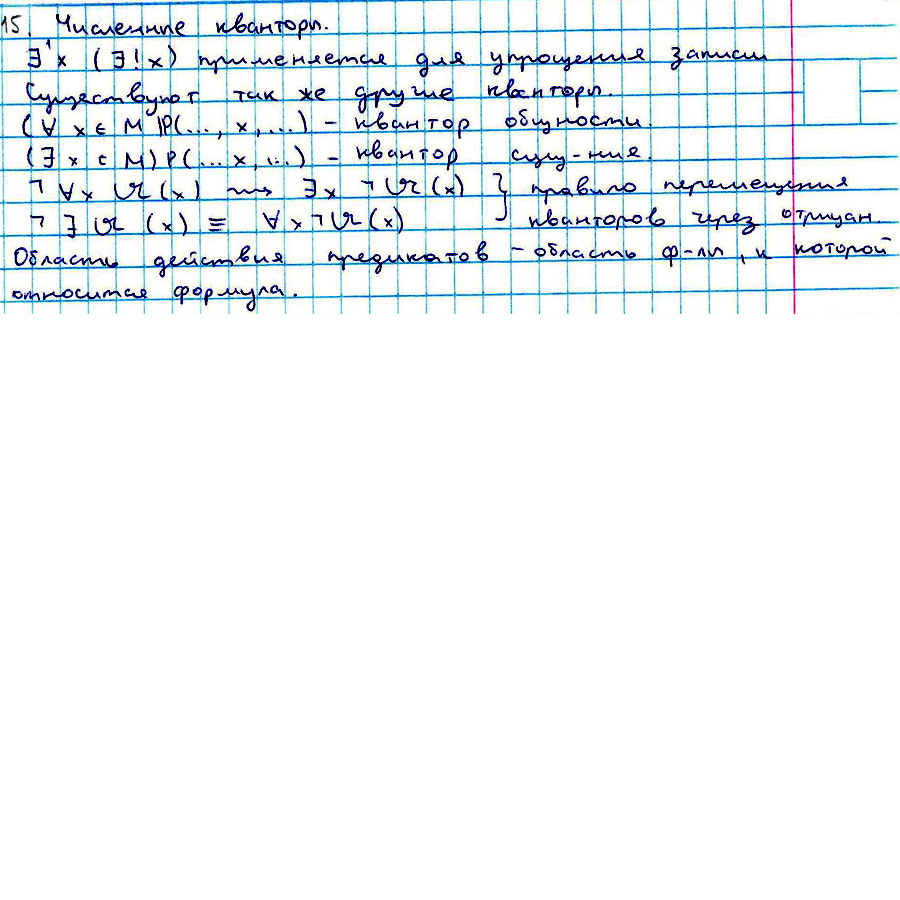 15. Численные кванторы.
∃¹x (∃!x) применяется для упрощения записи
Существуют так же другие кванторы.
(∀ x ∈ M)P(..., x, ...) – квантор общности.
(∃ x ⊂ M) P(... x, ...) – квантор сущ-ния.
¬ ∀x 𝔄(x) ⇝ ∃x ¬𝔄(x) } правило перемещения
¬ ∃ 𝔄 (x) ≡ ∀x¬𝔄(x) кванторов через отрицан.
Область действия предикатов – область ф-лы, к которой
относится формула.